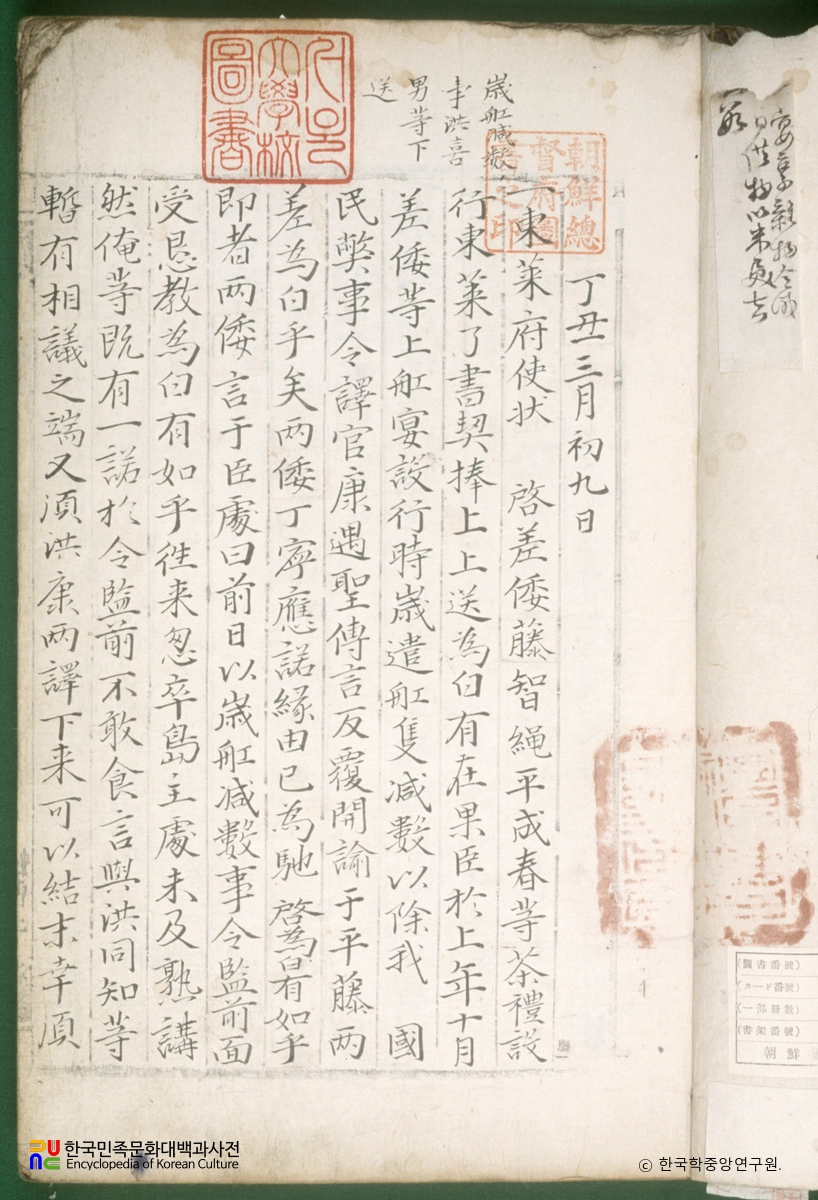 歲舡减數
事洪喜
男等下
送
丁丑三月初九日
一東萊府使狀 啓差倭藤智繩平成春等茶禮設
行東萊了書契捧上上送爲白有在果臣於上年十月
差倭等上舡宴設行時歲遣舡隻减數以除我 國
民弊事令譯官康遇聖傳言反覆開諭于平藤两
差爲白乎矣两倭丁寧應諾緣由已爲馳 啓爲白有如乎
即者两倭言于臣處曰前日以歲舡减數事令監前面
受恳教爲白有如乎徃来忽卒島主處未及熟講
然俺等既有一諾於令監前不敢食言與洪同知等
暫有相議之端又湏洪康两譯下来可以結末幸湏
朝鮮總
督府圖
書之印
圖書
(圖書番號)
(カード番號)
(一部冊數)
(書架番號)
朝鮮
한국민족문화대백과사전
Encyclopedia of Korean Culture
ⓒ 한국학중앙연구원.